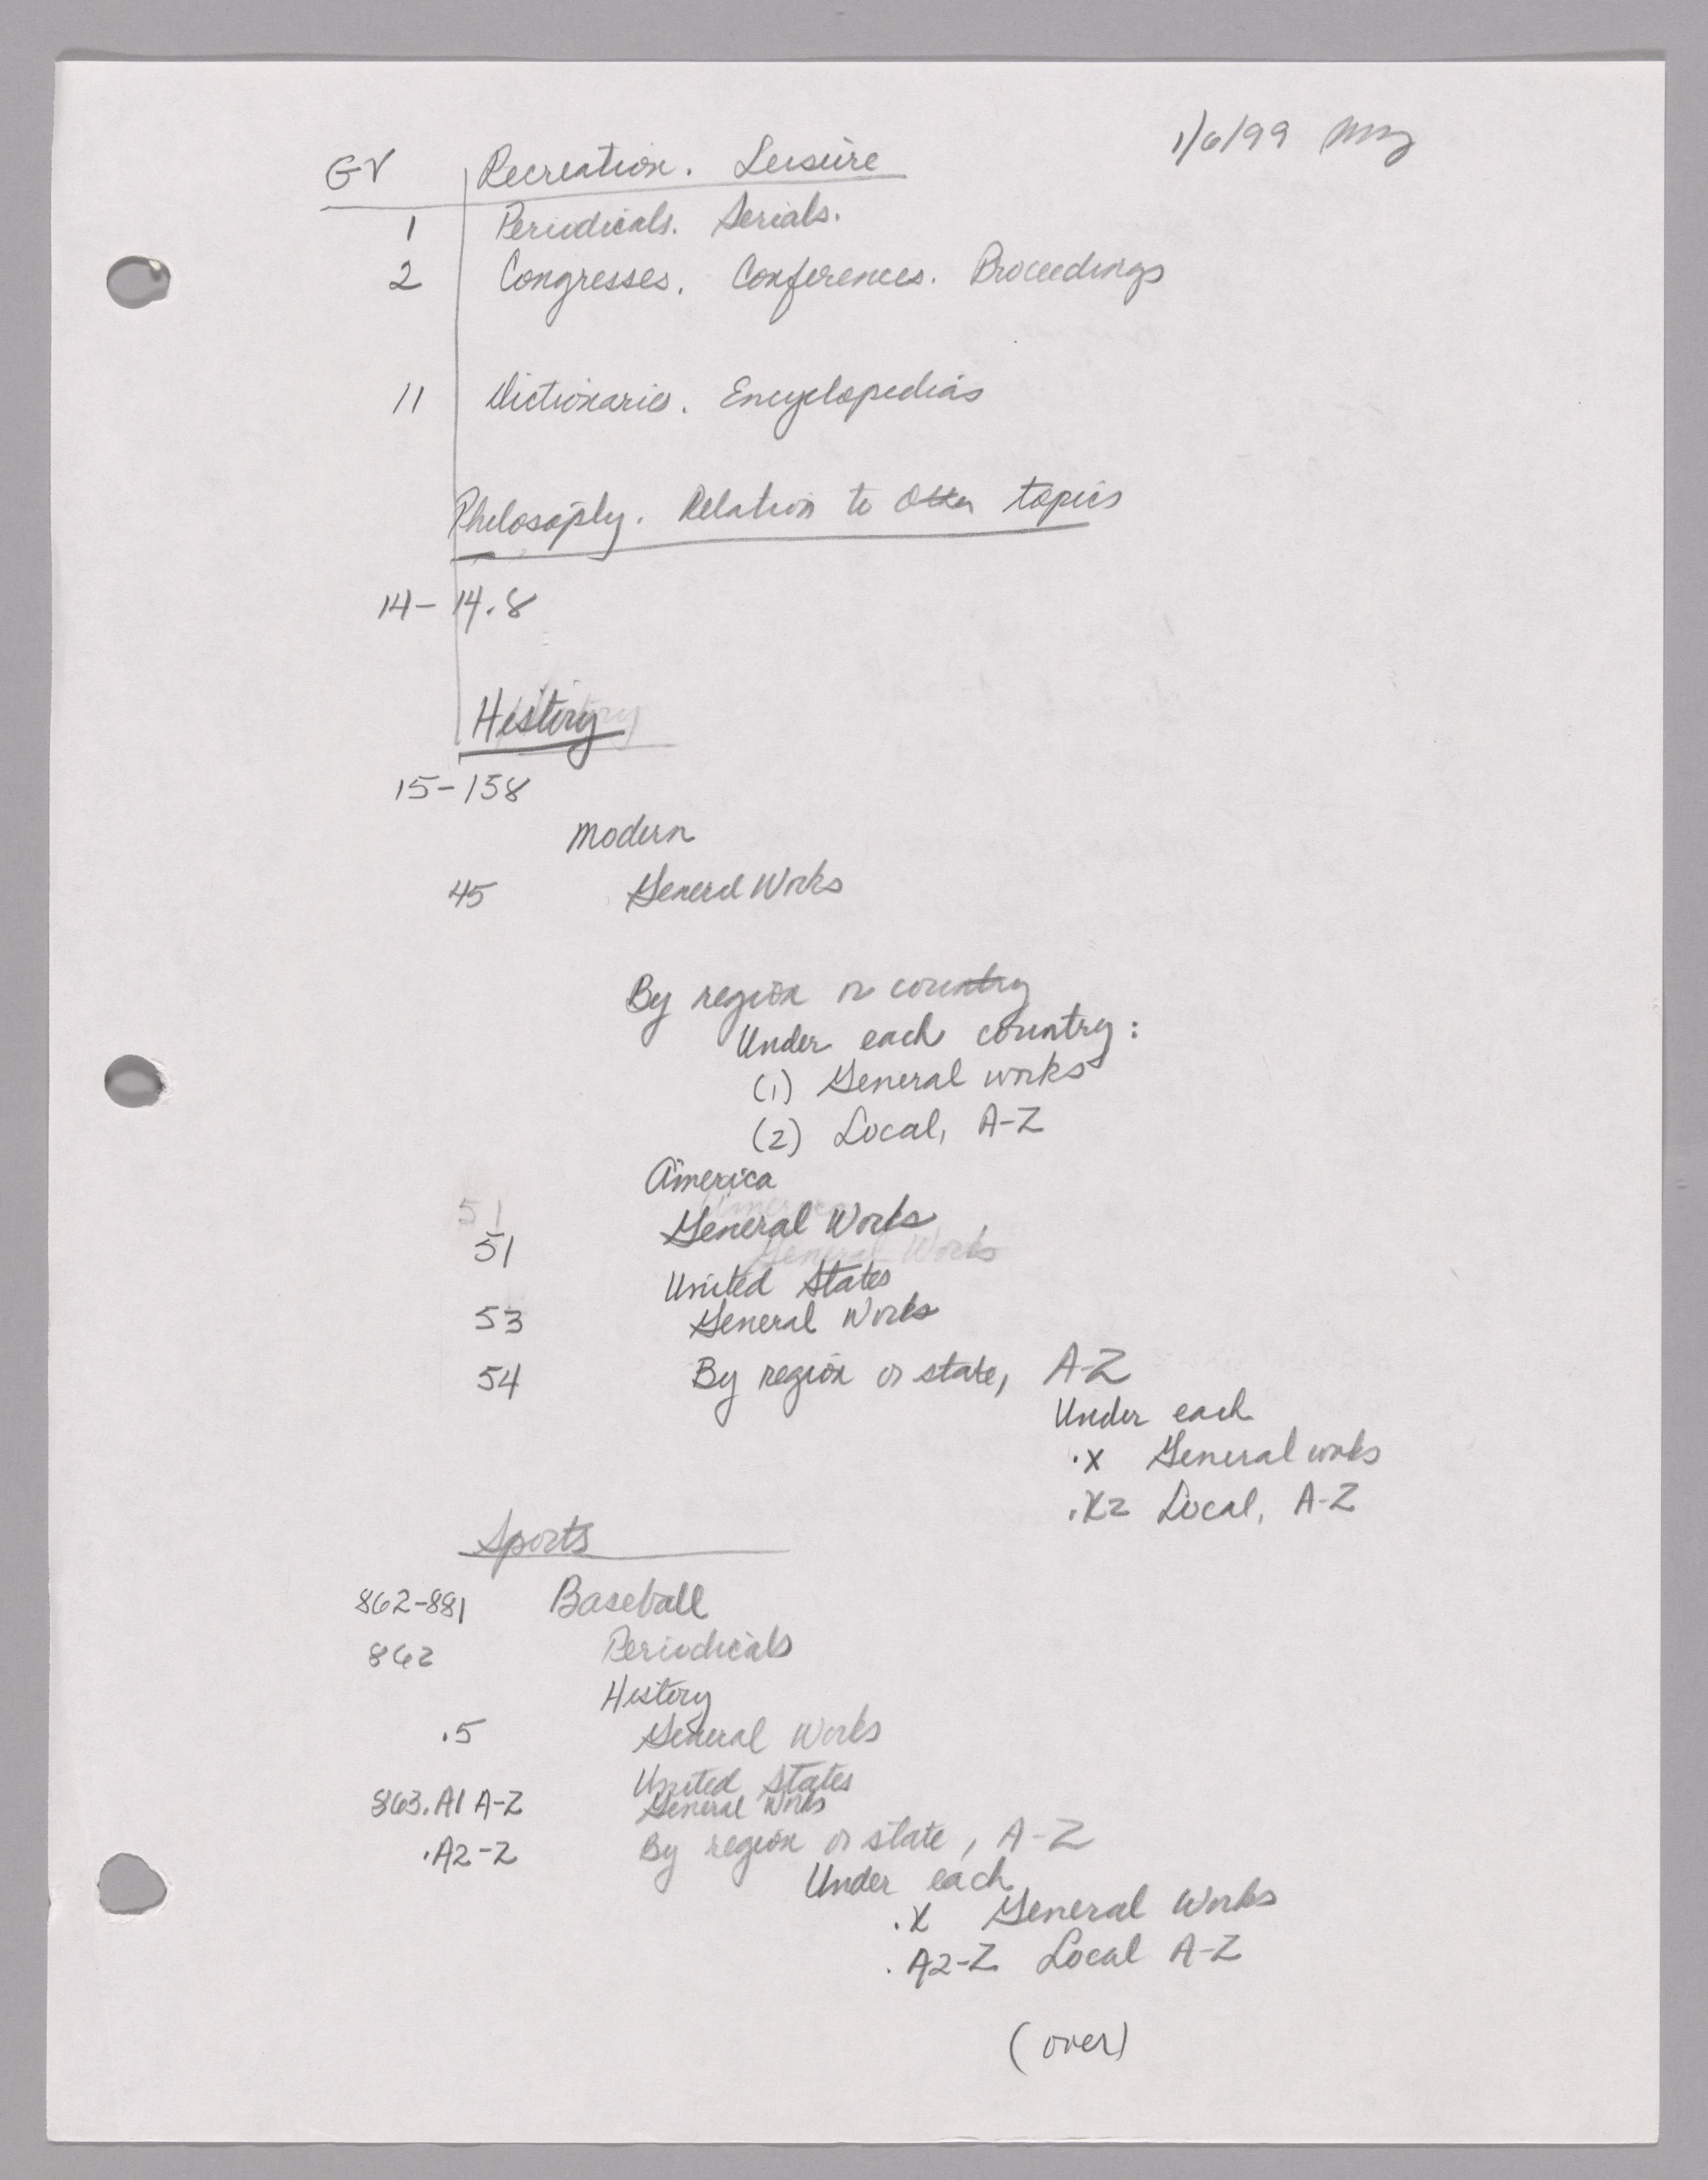 1/6/99
GV Recreation. Leisure
1 Periodicals. Serials.
2 Congresses. Conferences. Proceedings
11 Dictionaries. Encyclopedias
Philosophy. Relation to Other topics
14-14.8
History
15-158
Modern
45 General Works
By region or country
Under each country:
(1) General works
(2) Local, A-Z
America
51 General Works
United States
53 General Works
54 By region or state, A-Z
Under each
.X General works
.X2 Local, A-Z
Sports
862-881 Baseball
862 Periodicals
History
.5 General Works
United States
863.A1 A-Z General Works
.A2-Z By region or state, A-Z
Under each
.X General Works
.A2-Z Local A-Z
(over)